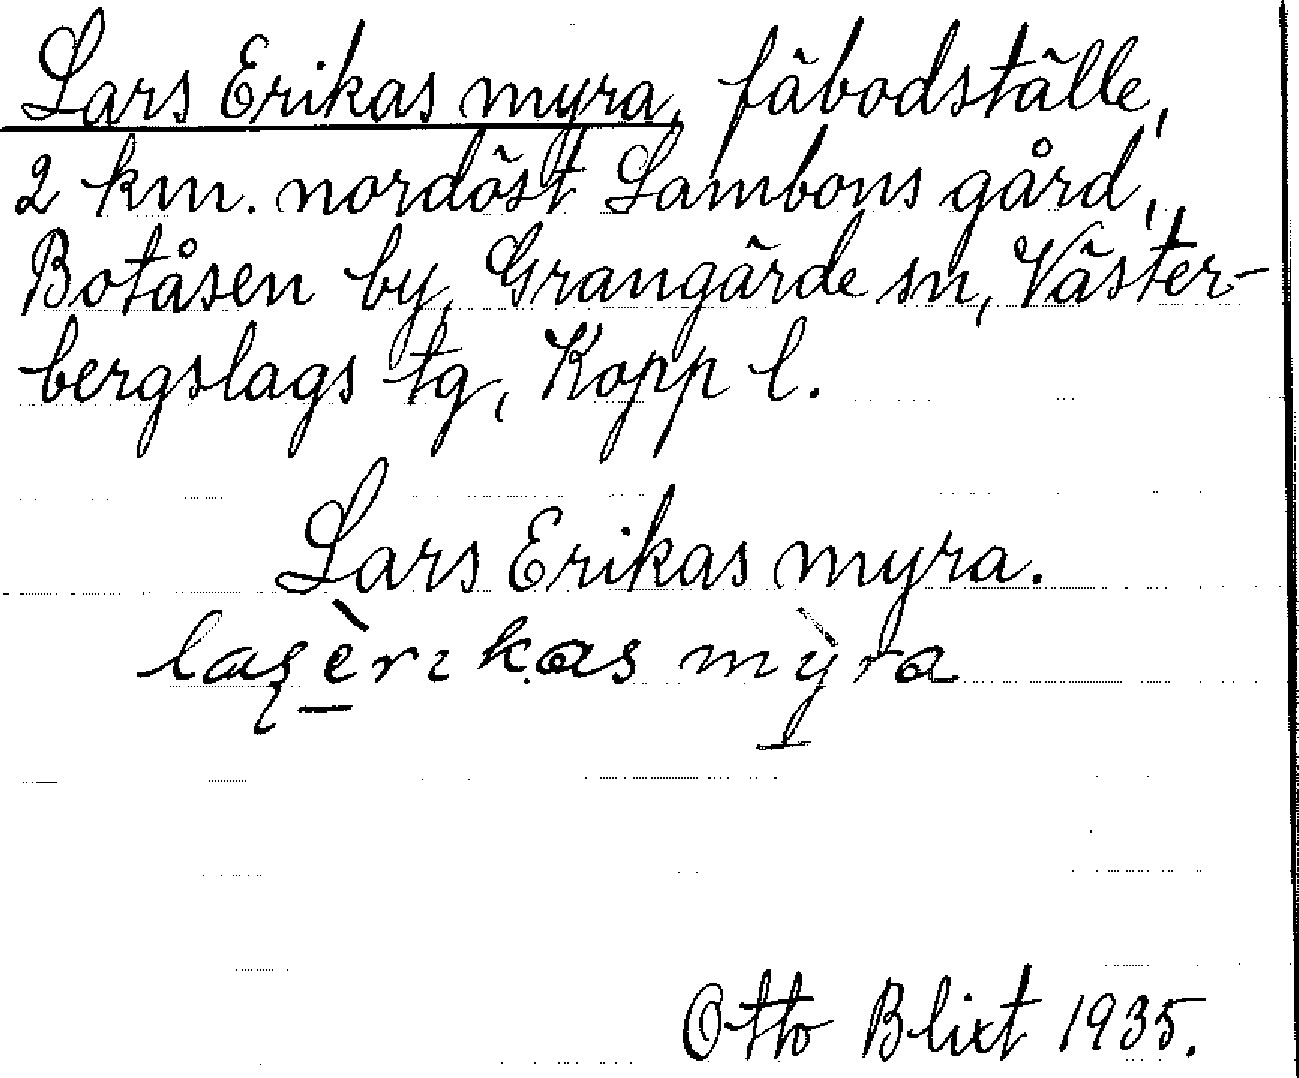 Lars Erikas myra, fäbodställe,
2 km. nordöst Lambons gård,
Botåsen by, Grangärde sn, Väster-
bergslags tg, Kopp l.
Lars Erikas myra.
laʂèrıkas mỳra
Otto Blixt 1935.